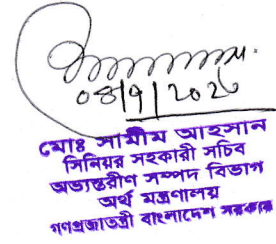 08/9/2020
মোঃ সামীম আহসান
সিনিয়র সহকারী সচিব
অভ্যন্তরীণ সম্পদ বিভাগ
অর্থ মন্ত্রণালয়
গণপ্রজাতন্ত্রী বাংলাদেশ সরকার